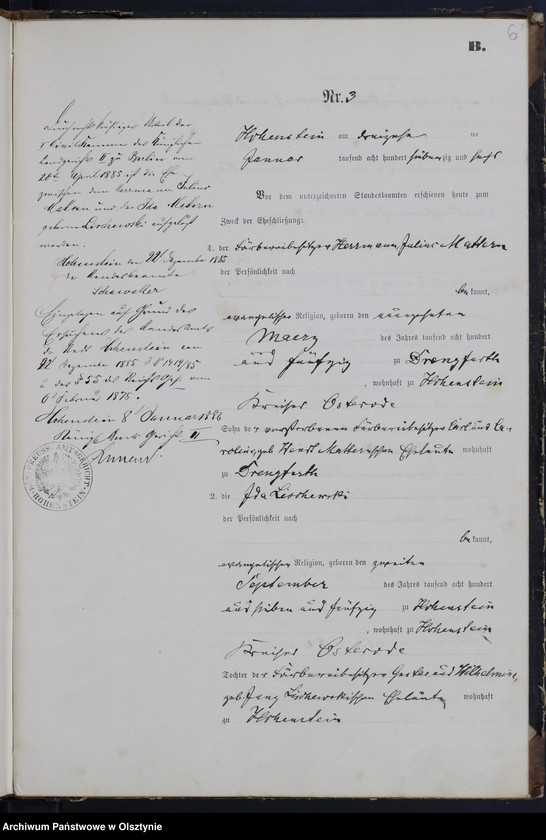 6
B.
Nr. 3
Hohenstein am dreizehn ten
Januar tausend acht hundert siebenzig und sechs
Vor dem unterzeichneten Standesbeamten erschienen heute zum
Zweck der Eheschließung:
1. der Färbereibesitzer Herrmann Julius Mattern
der Persönlichkeit nach
be kannt,
evangelischer Religion, geboren den
Maerz des Jahres tausend acht hundert
und fünfzig zu Drengfurth
, wohnhaft zu Hohenstein
Kreises Osterode
Sohn der verstorbenen Färbereibesitzer Carl und Ca-
roline geb. Mattern'schen Eheleute wohnhaft
zu Drengfurth
2. die Ida Lischewski
der Persönlichkeit nach
be kannt,
evangelischen Religion, geboren den zweiten
September des Jahres tausend acht hundert
und sieben und fünfzig zu Hohenstein
, wohnhaft zu Hohenstein
Kreises Osterode
Tochter der Färbereibesitzer und Wilhelmine,
geb. Lischewskischen Eheleute wohnhaft
zu Hohenstein
Durch rechtskräftiges Urteil der
Civilkammer des Königlichen
Landgerichts II zu Berlin vom
20ten April 1885 ist die Ehe
zwischen dem Julius
Mattern und der Ida Mattern
geborene Lischewski aufgelöst
worden.
Hohenstein den 22 Dezember 1885
der Standesbeamte
Eingetragen auf Grund des
Ersuchens des Standesamts
der Stadt Hohenstein vom
22 Dezember 1885
u. des § 55 des Reichs Ges. vom
6 Februar 1875.
Hohenstein 8 Januar 1886
Königl. Amts Gericht III
KÖNIGL. PREUSS. AMTSGERICHT
HOHENSTEIN
Archiwum Państwowe w Olsztynie